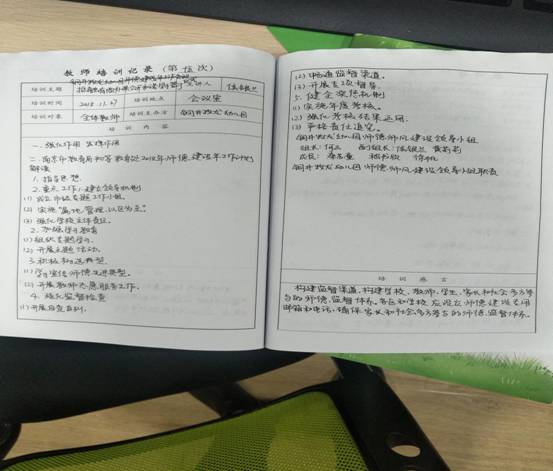 教师培训记录（第伍次）
培训主题
主讲人
培训时间 2018.11.27 培训地点 会议室
培训对象 全体教师 培训主办方
培训内容
一、强化作用 发挥作用
二、南京市教育局和等教育处2018年师德建设年工作计划
解读
1. 指导思想
2. 重点工作1. 建立领导机制
(1) 成立市级专题工作小组.
(2) 实施"属地管理、以区为主".
(3) 强化学校主体责任.
2. 加强学习教育
(1) 组织专题学习.
(2) 开展主题活动.
3. 积极树选典型.
(1) 学习宣传师德先进典型.
(2) 开展教师志愿服务工作.
4. 强化监督检查
(1) 开展自查自纠.
(2) 畅通监督渠道.
(3) 开展专项督导.
5. 健全奖惩机制
(1) 实施年度考核.
(2) 强化考核结果运用.
(3) 严格责任追究.
幼儿园师德师风建设领导小组
组长: 副组长:
成员:
幼儿园师德师风建设领导小组职责
培训感言
构建监督渠道,构建学校、教师、学生、家长和社会多方参
与的师德监督体系.各区和学校应设立师德建设专用
邮箱和电话,确保家长和社会多方参与的师德监督体系.